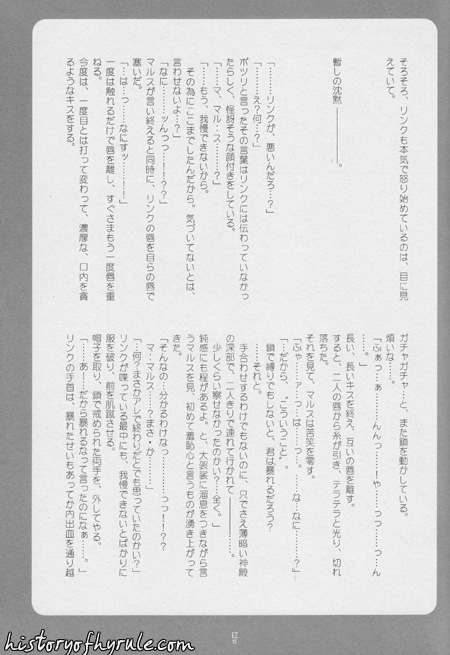 そろそろ、リンクも本気で怒り始めているのは、目に見
えていて。
暫しの沈黙―――――。
「………リンクが、悪いんだろ…？」
「………え？何…？」
ポツリと言ったその言葉はリンクには伝わっていなかっ
たらしく、怪訝そうな顔付きをしている。
「……マ、マル…ス……？」
「……もう、我慢できないから。
その為にここまでしたんだから。気づいてないとは、
言わせないよ…？」
「なに……ッんっっ…！！？？」
マルスが言い終えると同時に、リンクの唇を自らの唇で
塞いだ。
「…は…っ……なにすッ……！！」
一度は触れるだけで唇を離し、すぐさまもう一度唇を重
ねる。
今度は、一度目とは打って変わって、濃厚な、口内を貪
るようなキスをする。
ガチャガチャ…と、また鎖を動かしている。
煩いな……。
「…ふぁっ…ぁ………んんっ……！ゃ……っっ……っん
……。」
長い、長いキスを終え、互いの唇を離す。
すると、二人の唇から糸が引き、テラテラと光り、切れ
落ちた。
それを見て、マルスは苦笑を零す。
「ふゃ……ァ…っ…は……っ…。……な…なに……？」
「…だから、『こういうこと』。
鎖で縛りでもしないと、君は暴れるだろう？
……それと。
手合わせするわけでもないのに、只でさえ薄暗い神殿
の深部で、二人きりで連れて行かれて―――――。
少しくらい察せなかったのかい？…全く。」
鈍感にも程があるよ。と、大袈裟に溜息をつきながら言
うマルスを見、初めて羞恥心と言うものが湧き上がって
きた。
「そんなの…分かるわけなっ………っっ！！？？
マ…マルス……？まさ・か………」
「…何？まさかアレで終わりだとでも思っていたのかい？」
リンクが喋っている最中にも、我慢できないとばかりに
服を破り、前を肌蹴させる。
帽子を取り、鎖で戒められた両手を、外してやる。
「……あ…。だから暴れるなって言ったのになぁ…。」
リンクの手首は、暴れたせいもあってか内出血を通り越
historyofhyrule.com